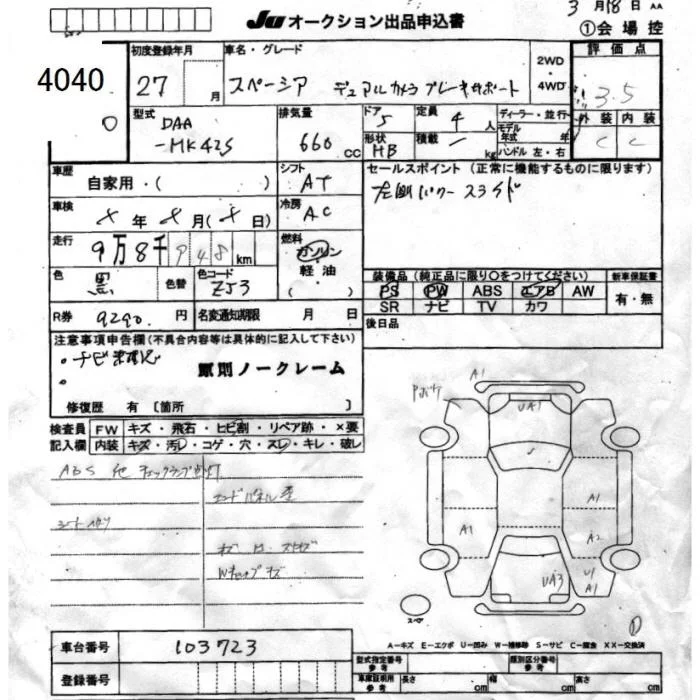 JU オークション出品申込書
3月18日 AA
①会場控
4040
初度登録年月
27 月
車名・グレード
スペーシア デュアルカメラブレーキサポート
2WD
・
4WD
評価点
3.5
外装 内装
C C
型式
DAA
-MK42S
排気量
660 cc
ドア
5
定員
4 人
形状
HB
積載
kg
ディーラー・並行
モデル年式 年
ハンドル 左・右
車歴
自家用・( )
シフト
AT
セールスポイント(正常に機能するものに限ります)
左側パワースライド
車検
年 月(日)
冷房
AC
走行
9万8千948km
燃料
ガソリン
軽油
( )
色
黒
色替
色コード
ZJ3
装備品(純正品に限り○をつけてください)
新車保証書
PS PW ABS エアB AW
SR ナビ TV カワ
有・無
R券
9290 円
名変通知期限 月 日
後日品
注意事項申告欄(不具合内容等は具体的に記入して下さい)
・ナビ未確認
・
原則ノークレーム
修復歴 有〔箇所 〕
検査員記入欄
FW キズ・飛石・ヒビ割・リペア跡・×要
内装 キズ・汚レ・コゲ・穴・スレ・キレ・破レ
ABS 他 チェックランプ点灯
A1
UA1
A1
A1
A2
U1
A1
UA3
スペア
A-キズ E-エクボ U-凹み W-補修跡 S-サビ C-腐食 XX-交換済
車台番号
103723
登録番号
型式指定番号
参考
類別区分番号
参考
車庫証明用
参考
長さ cm
幅 cm
高さ cm